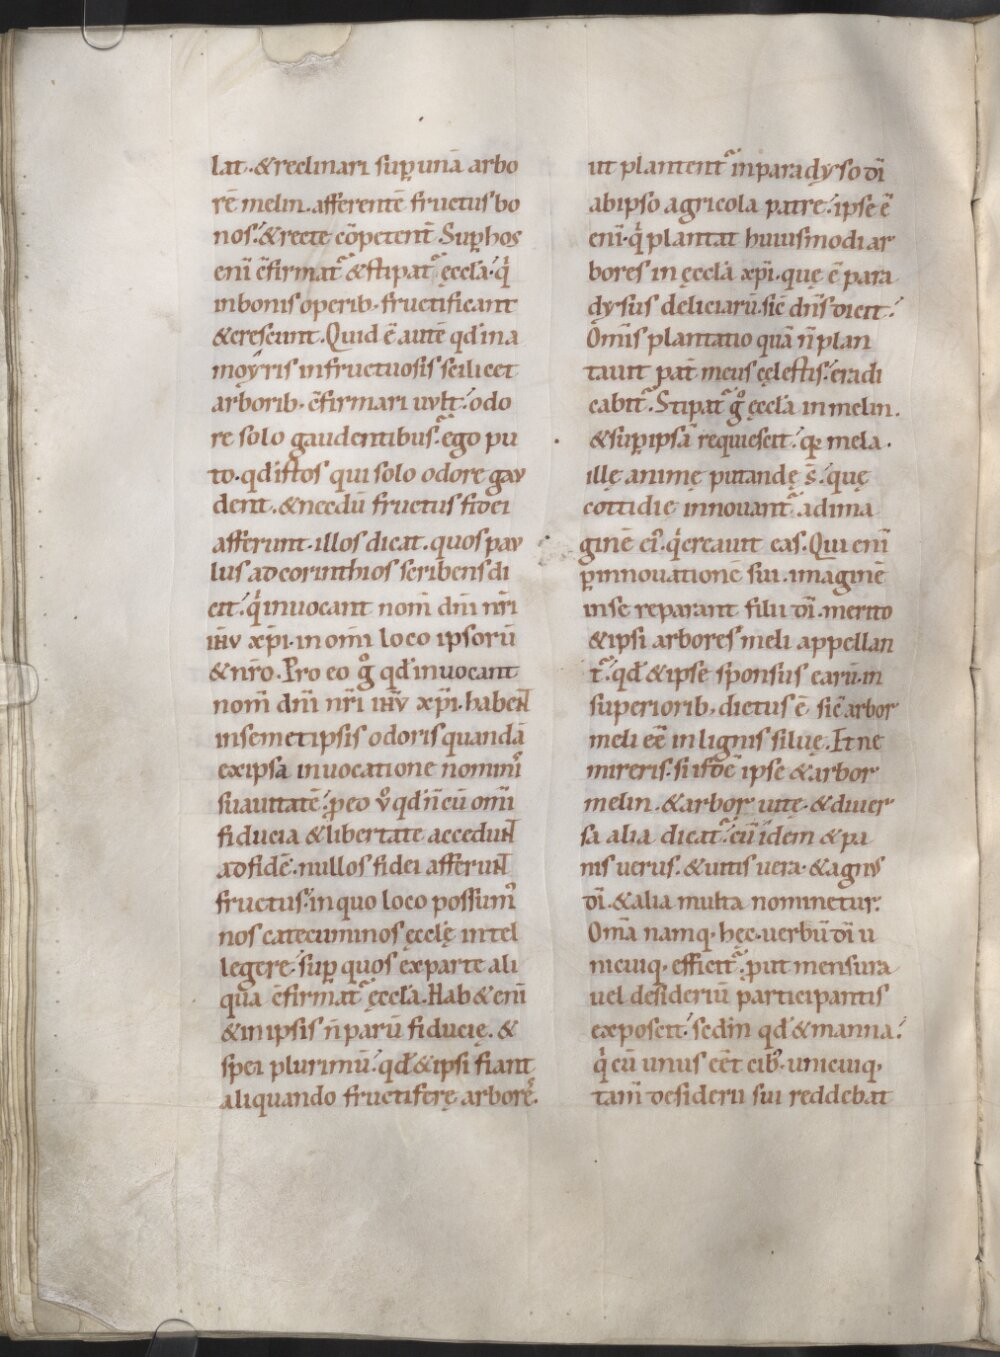 lat. &reclinari sup̱ unā arbo
rē melin. afferentē fructus bo
nos. &recte cōpetent̄. Sup̱ hos
eni̅ c̄firmat᷑ &stipat᷑ ęccl̄a. q̇
inbonis operib. fructificant
&crescunt. Quid ē autē qđ ina
moy̆ris infructuosis scilicet
arborib. c̄firmari uvlt̄. odo
re solo gaudentibus. ego pu
to. qđ istos qui solo odore gav
dent. &necdū fructus fidei
afferunt. illos dicat. quos pav
lus ad corinthios scribens di
cit. q̇ inuocant nom̄ dn̄i nr̄i
ihv xp̄i. in om̄i loco ipsorū
&nr̄o. Pro eo g̊ qđ inuocant
nom̄ dn̄i nr̄i ihv xp̄i. habent
insemetipsis odoris quandā
ex ipsa inuocatione nomini᷒
suauitatē. p̱ eo v̊ qđ n̄ cū om̄i
fiducia &libertate accedunt
ad fidē. nullos fidei afferunt
fructus. in quo loco possum᷒
nos catecuminos ęcclę̄ intel
legere. sup̱ quos ex parte ali
qua c̄firmat᷑ ęccl̄a. Hab& eni̅
&in ipsis n̄ parū fiducię. &
spei plurimū. qđ &ipsi fiant
aliquando fructiferę arbore᷒.
ut plantent᷑ inparady̆so dī
ab ipso agricola patre. ipse ē
eni̅. q̇ plantat huiusmodi ar
bores in ęccl̄a xp̄i. quę ē para
dy̆sus deliciarū. sic̄ dn̄s dicit.
Om̄is plantatio quā n̄ plan
tauit pat̄ meus cęlestis. eradi
cabit᷑. Stipat᷑ g̊ ęccl̄a in melin.
&sup̱ ipsā requiescit. q̱ mela.
illę animę putandę s̄. quę
cottidie innouant᷑. ad ima
ginē ei᷒. q̇ creauit eas. Qui eni̅
p̱ innouationē sui. imaginē
in se reparant filii dī. merito
&ipsi arbores meli appellan
t᷑. qđ &ipse sponsus earū. in
superiorib. dictus ē sic̄ arbor
meli eē in lignis siluę. Et ne
mireris. si isdē ipse &arbor
melin. &arbor uitę. &diuer
sa alia dicat᷑. cū idem &pa
nis verus. &uitis uera. &agnus
dī. &alia multa nominetur.
Om̄a namq. hęc. uerbū dī u
nicuiq. efficit᷑. p̱ut mensura
uel desideriū participantis
exposcit. sc̄dm qđ &manna.
q̇ cū unus eēt cib᷒. unicuiq.
tam̄ desiderii sui reddebat